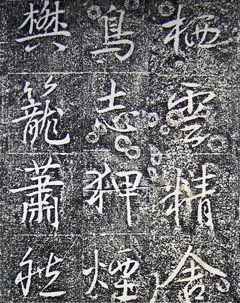 栖雲精舍
鳥志狎煙
樊籠蕭秋